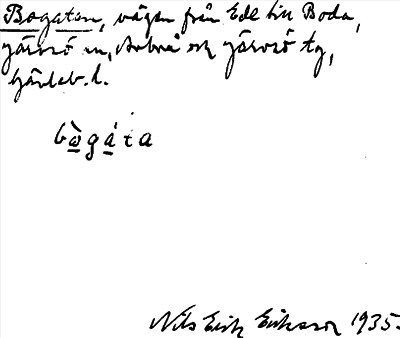 Bogatan, vägen från Ede till Boda,
Järvsö sn, Arbrå och Järvsö tg,
Gävleb. l.
bὼ̲gá̲ta
Nils Erik Eriksson 1935.